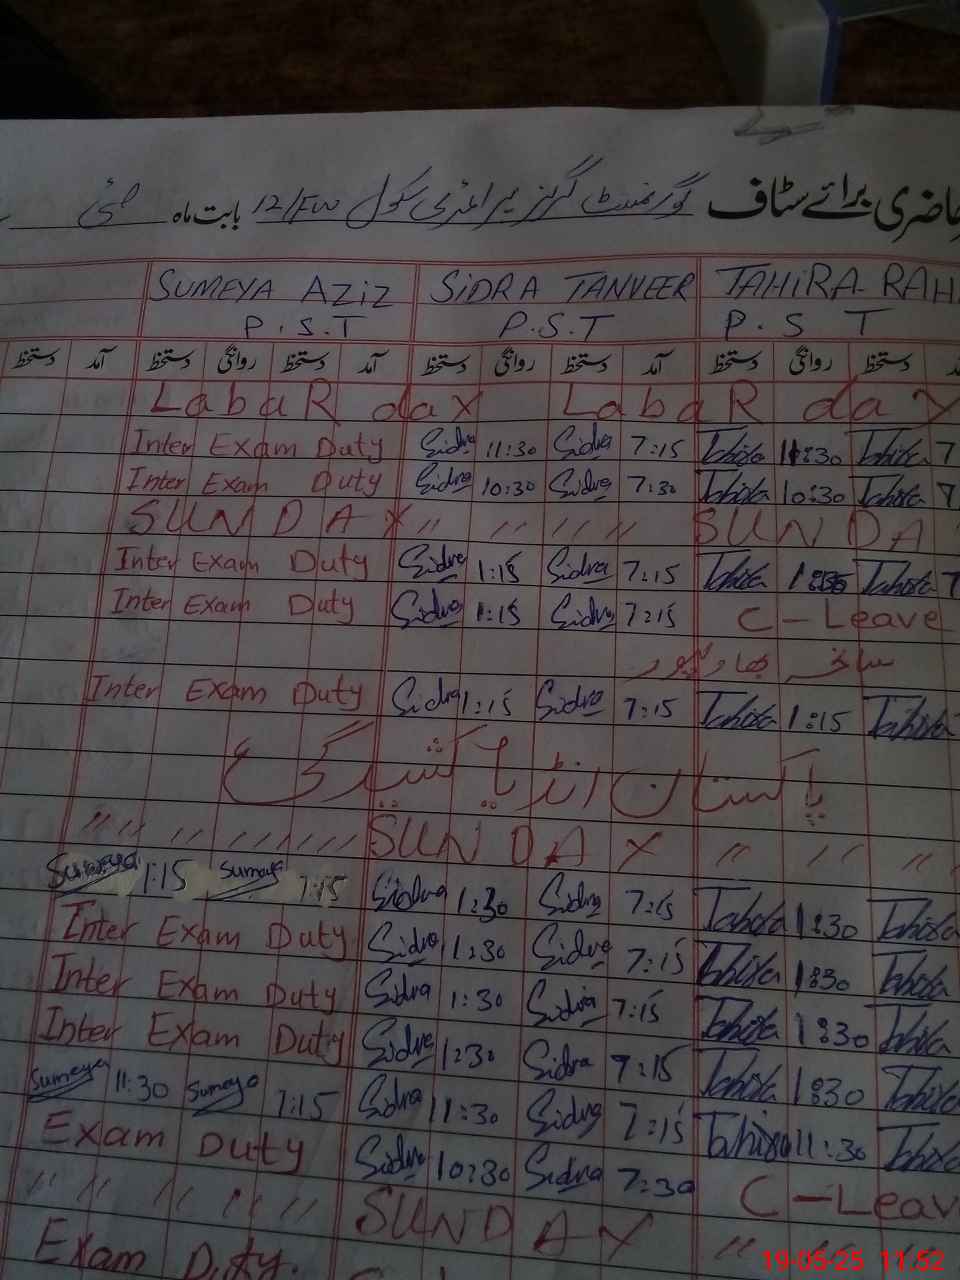 حاضری برائے سٹاف گورنمنٹ گرلز پرائمری سکول 12/FW بابت ماہ مئی
SUMEYA AZIZ SIDRA TANVEER TAHIRA RAH
P.S.T P.S.T P.S T
دستخط آمد دستخط روانگی دستخط آمد دستخط روانگی دستخط آمد دستخط روانگی دستخط
LabaR daY LabaR daY
Inter Exam Duty Sidra 11:30 Sidra 7:15 Tahira 11:30 Tahira 7
Inter Exam Duty Sidra 10:30 Sidra 7:30 Tahira 10:30 Tahira 7
SUNDAY " " " " SUNDA
Inter Exam Duty Sidra 1:15 Sidra 7:15 Tahira Tahira 7
Inter Exam Duty Sidra 1:15 Sidra 7:15 C-Leave
سانحہ بہاولپور
Inter Exam Duty Sidra 1:15 Sidra 7:15 Tahira 1:15 Tahira
پاکستان انڈیا کشیدگی
" " " " " " " SUNDAY " " "
Sumeya 1:15 Sumeya 7:15 Sidra 1:30 Sidra 7:15 Tahira 1:30 Tahira
Inter Exam Duty Sidra 1:30 Sidra 7:15 Tahira 1:30 Tahira
Inter Exam Duty Sidra 1:30 Sidra 7:15 Tahira 1:30 Tahira
Inter Exam Duty Sidra 1:30 Sidra 7:15 Tahira 1:30 Tahira
Sumeya 11:30 Sumeya 7:15 Sidra 11:30 Sidra 7:15 Tahira 11:30 Tahira
Exam Duty Sidra 10:30 Sidra 7:30 C-Leav
" " " " " SUNDAY " " "
Exam Duty.
19-05-25 11:52